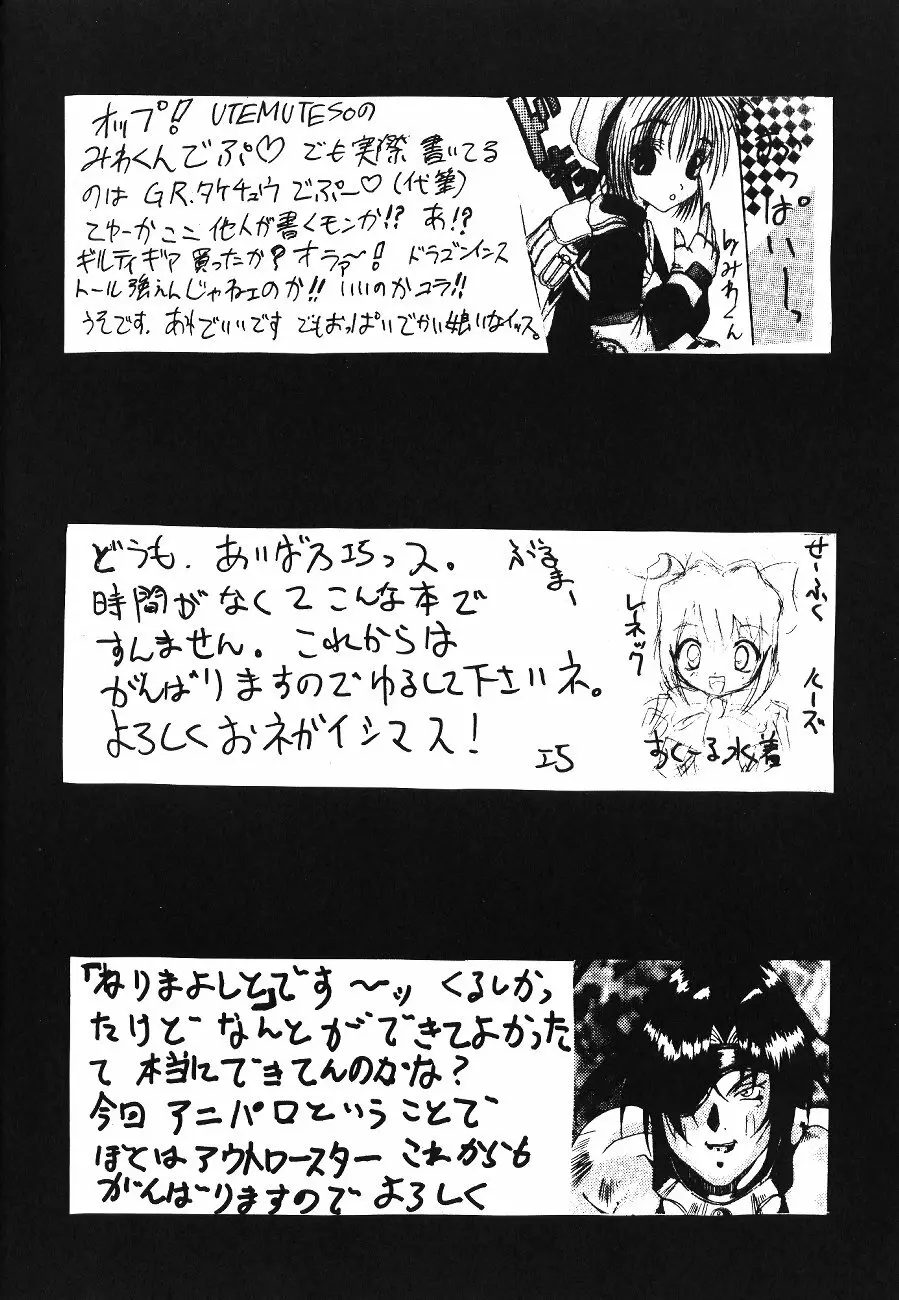 オップ! UTEMUTESOの
みわくんでぷ♡ でも実際 書いてる
のは G.R.タケチュウ でぷー♡(代筆)
てゆーか ここ 他人が書くモンか!? あ!?
ギルティギア 買ったか? オラァ〜! ドラゴンインス
トール強えんじゃねェのか!! いいのかコラ!!
うそです. あれでいいです でもおっぱいでかい娘いなイッス。
おっぱいーっ
byみわくん
どうも. あいば エ5っス。
時間がなくてこんな本で
すんません。 これからは
がんばりますのでゆるして下さいネ。
よろしくおネガイシマス!
エ5
ぶるまー
せーふく
レーネック
ルーズ
すくーる水着
「ねりまよしと」です 〜ッ くるしかっ
たけど なんとができてよかった
て 本当にできてんのかな?
今回 アニパロということで
ぼくはアウトロースター これからも
がんばりますので よろしく